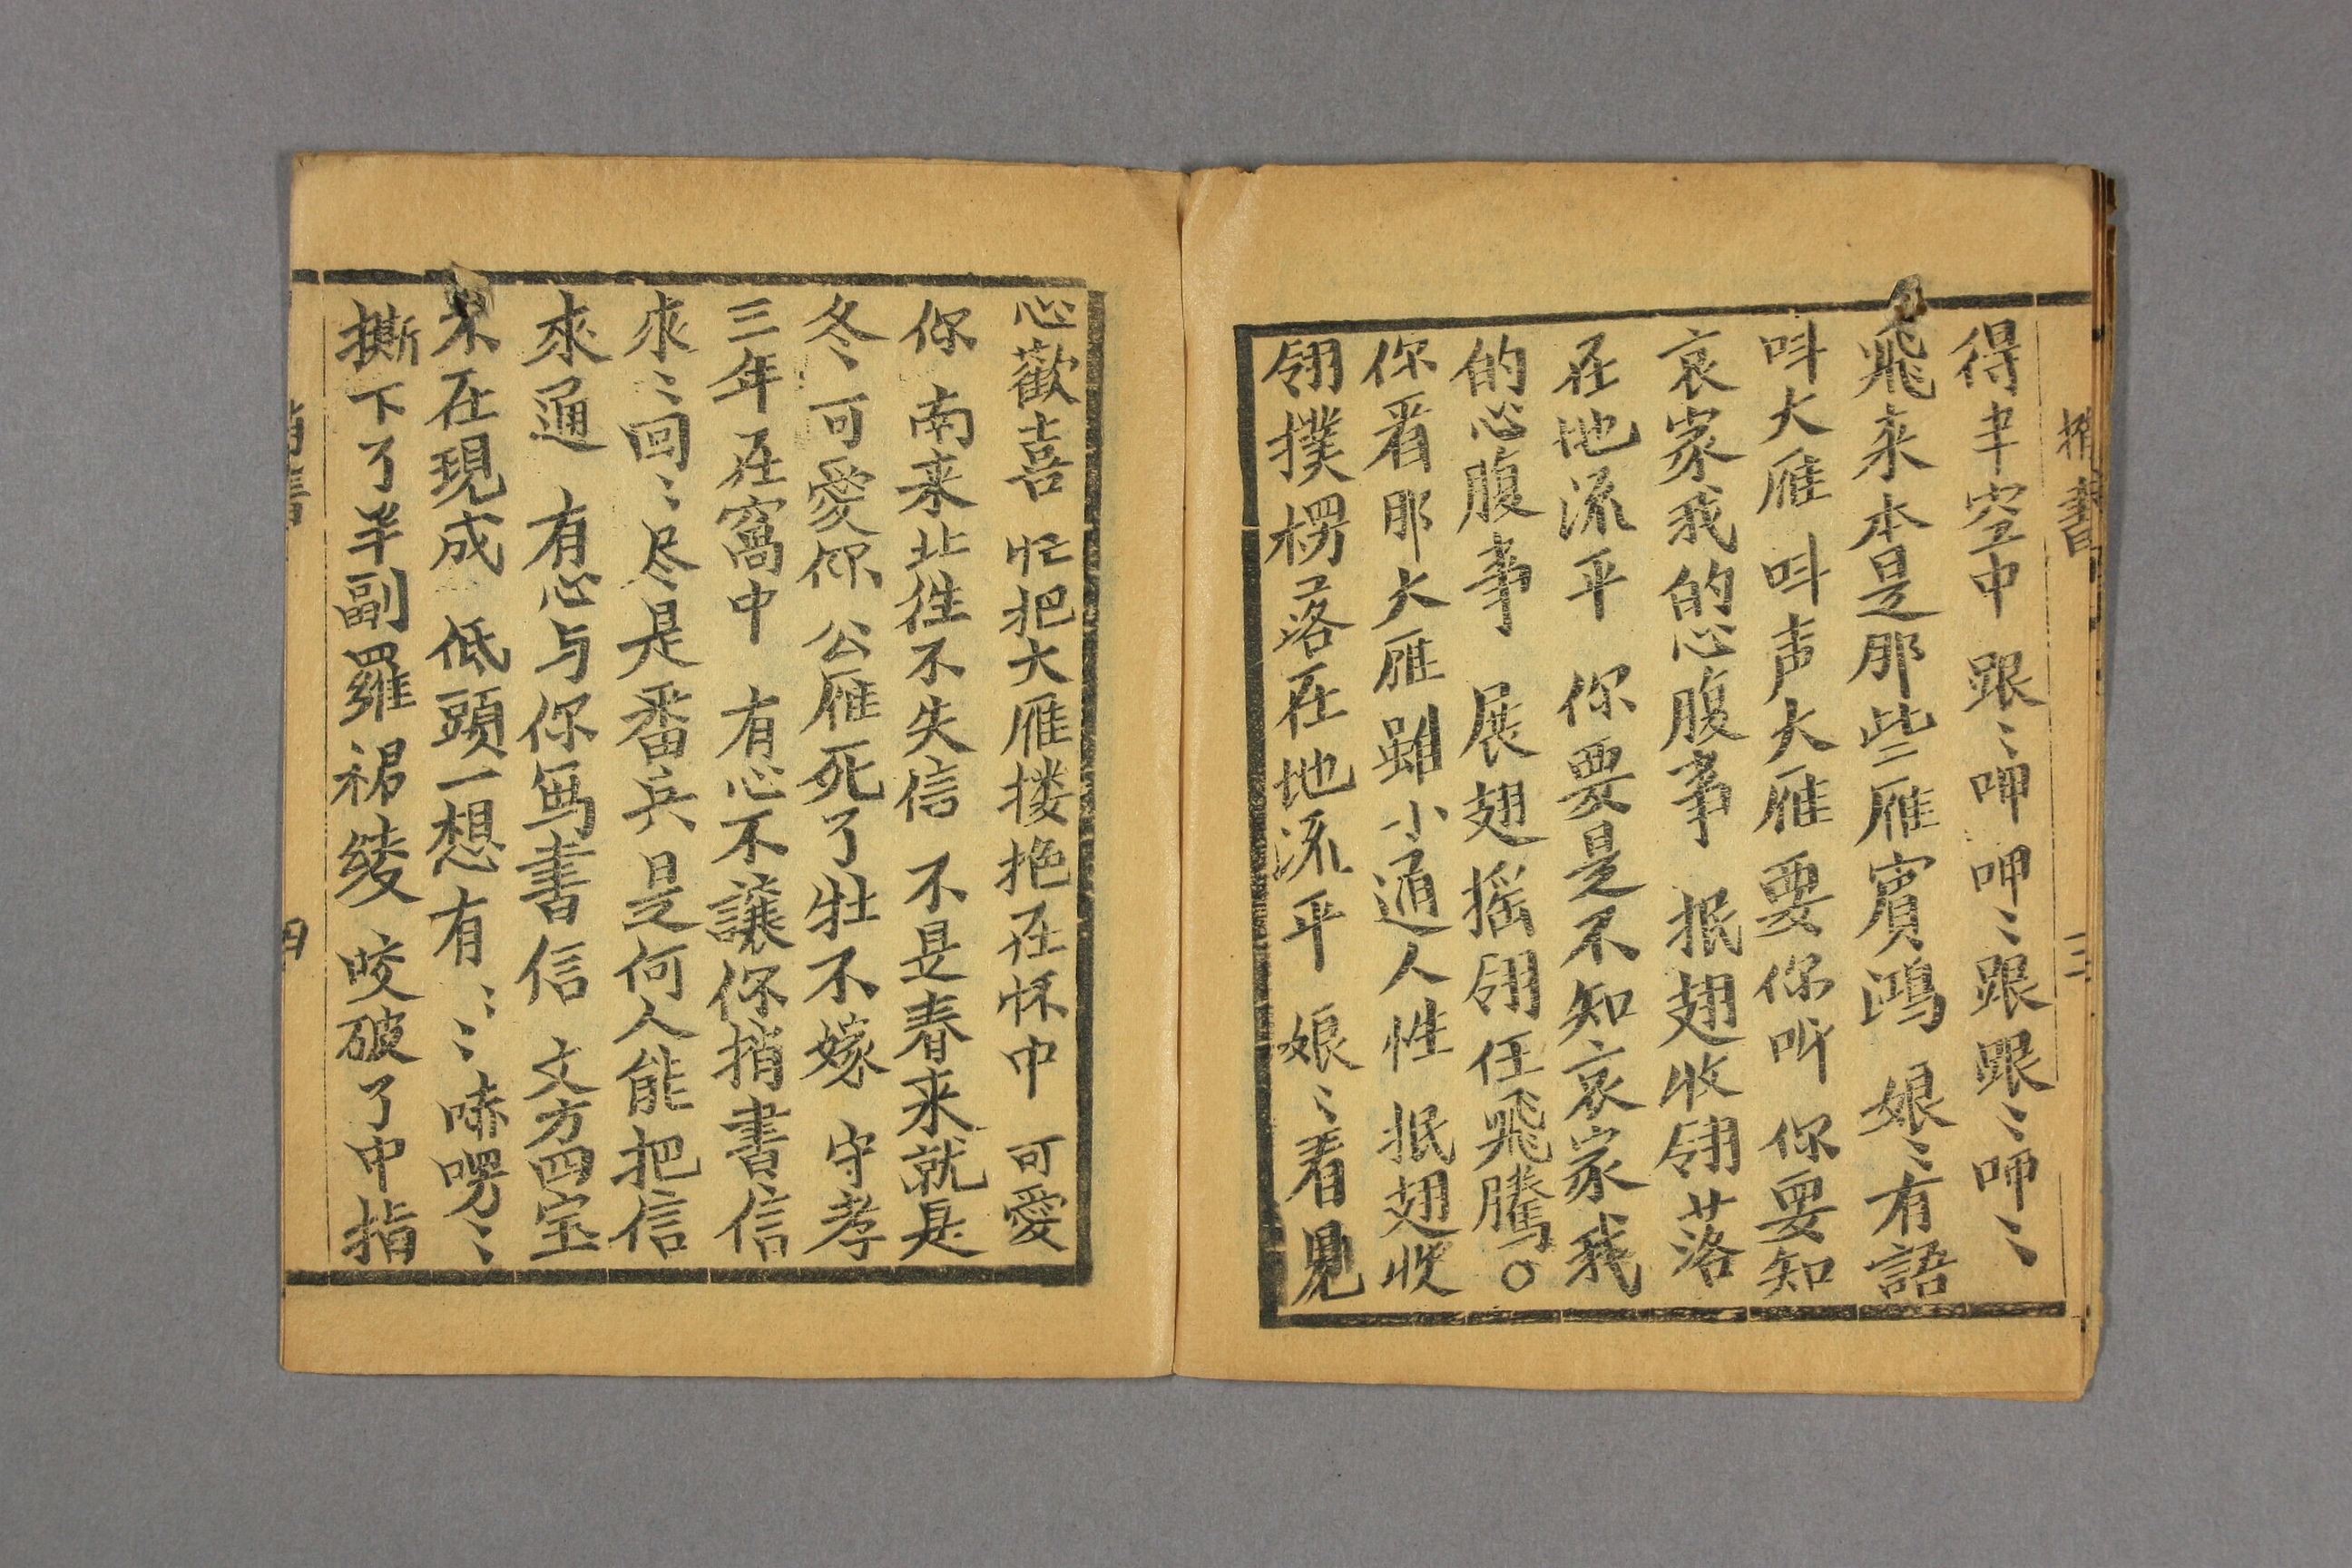 捎書 三
得半空中 跟〻呷呷〻跟跟〻呷〻
飛来本是那些雁賔鴻 娘〻有語
呌大雁 呌声大雁 要你听 你要知
哀家我的心腹事 抿翅收翎落
在地流平 你要是不知哀家我
的心腹事 展翅摇翎任飛騰〇
你看那大雁雖小通人性 抿翅收
翎撲楞落在地流平 娘〻看見
心歡喜 忙把大雁搂抱在怀中 可愛
你 南来北徃不失信 不是春来就是
冬 可愛你 公雁死了牡不嫁 守孝
三年在窩中 有心不讓你捎書信
來〻回〻尽是番兵 是何人能把信
來通 有心与你寫書信 文方四宝
不在現成 低頭一想有〻〻哧㗁〻
撕下了半副羅裙綾 咬破了中指
捎書 四